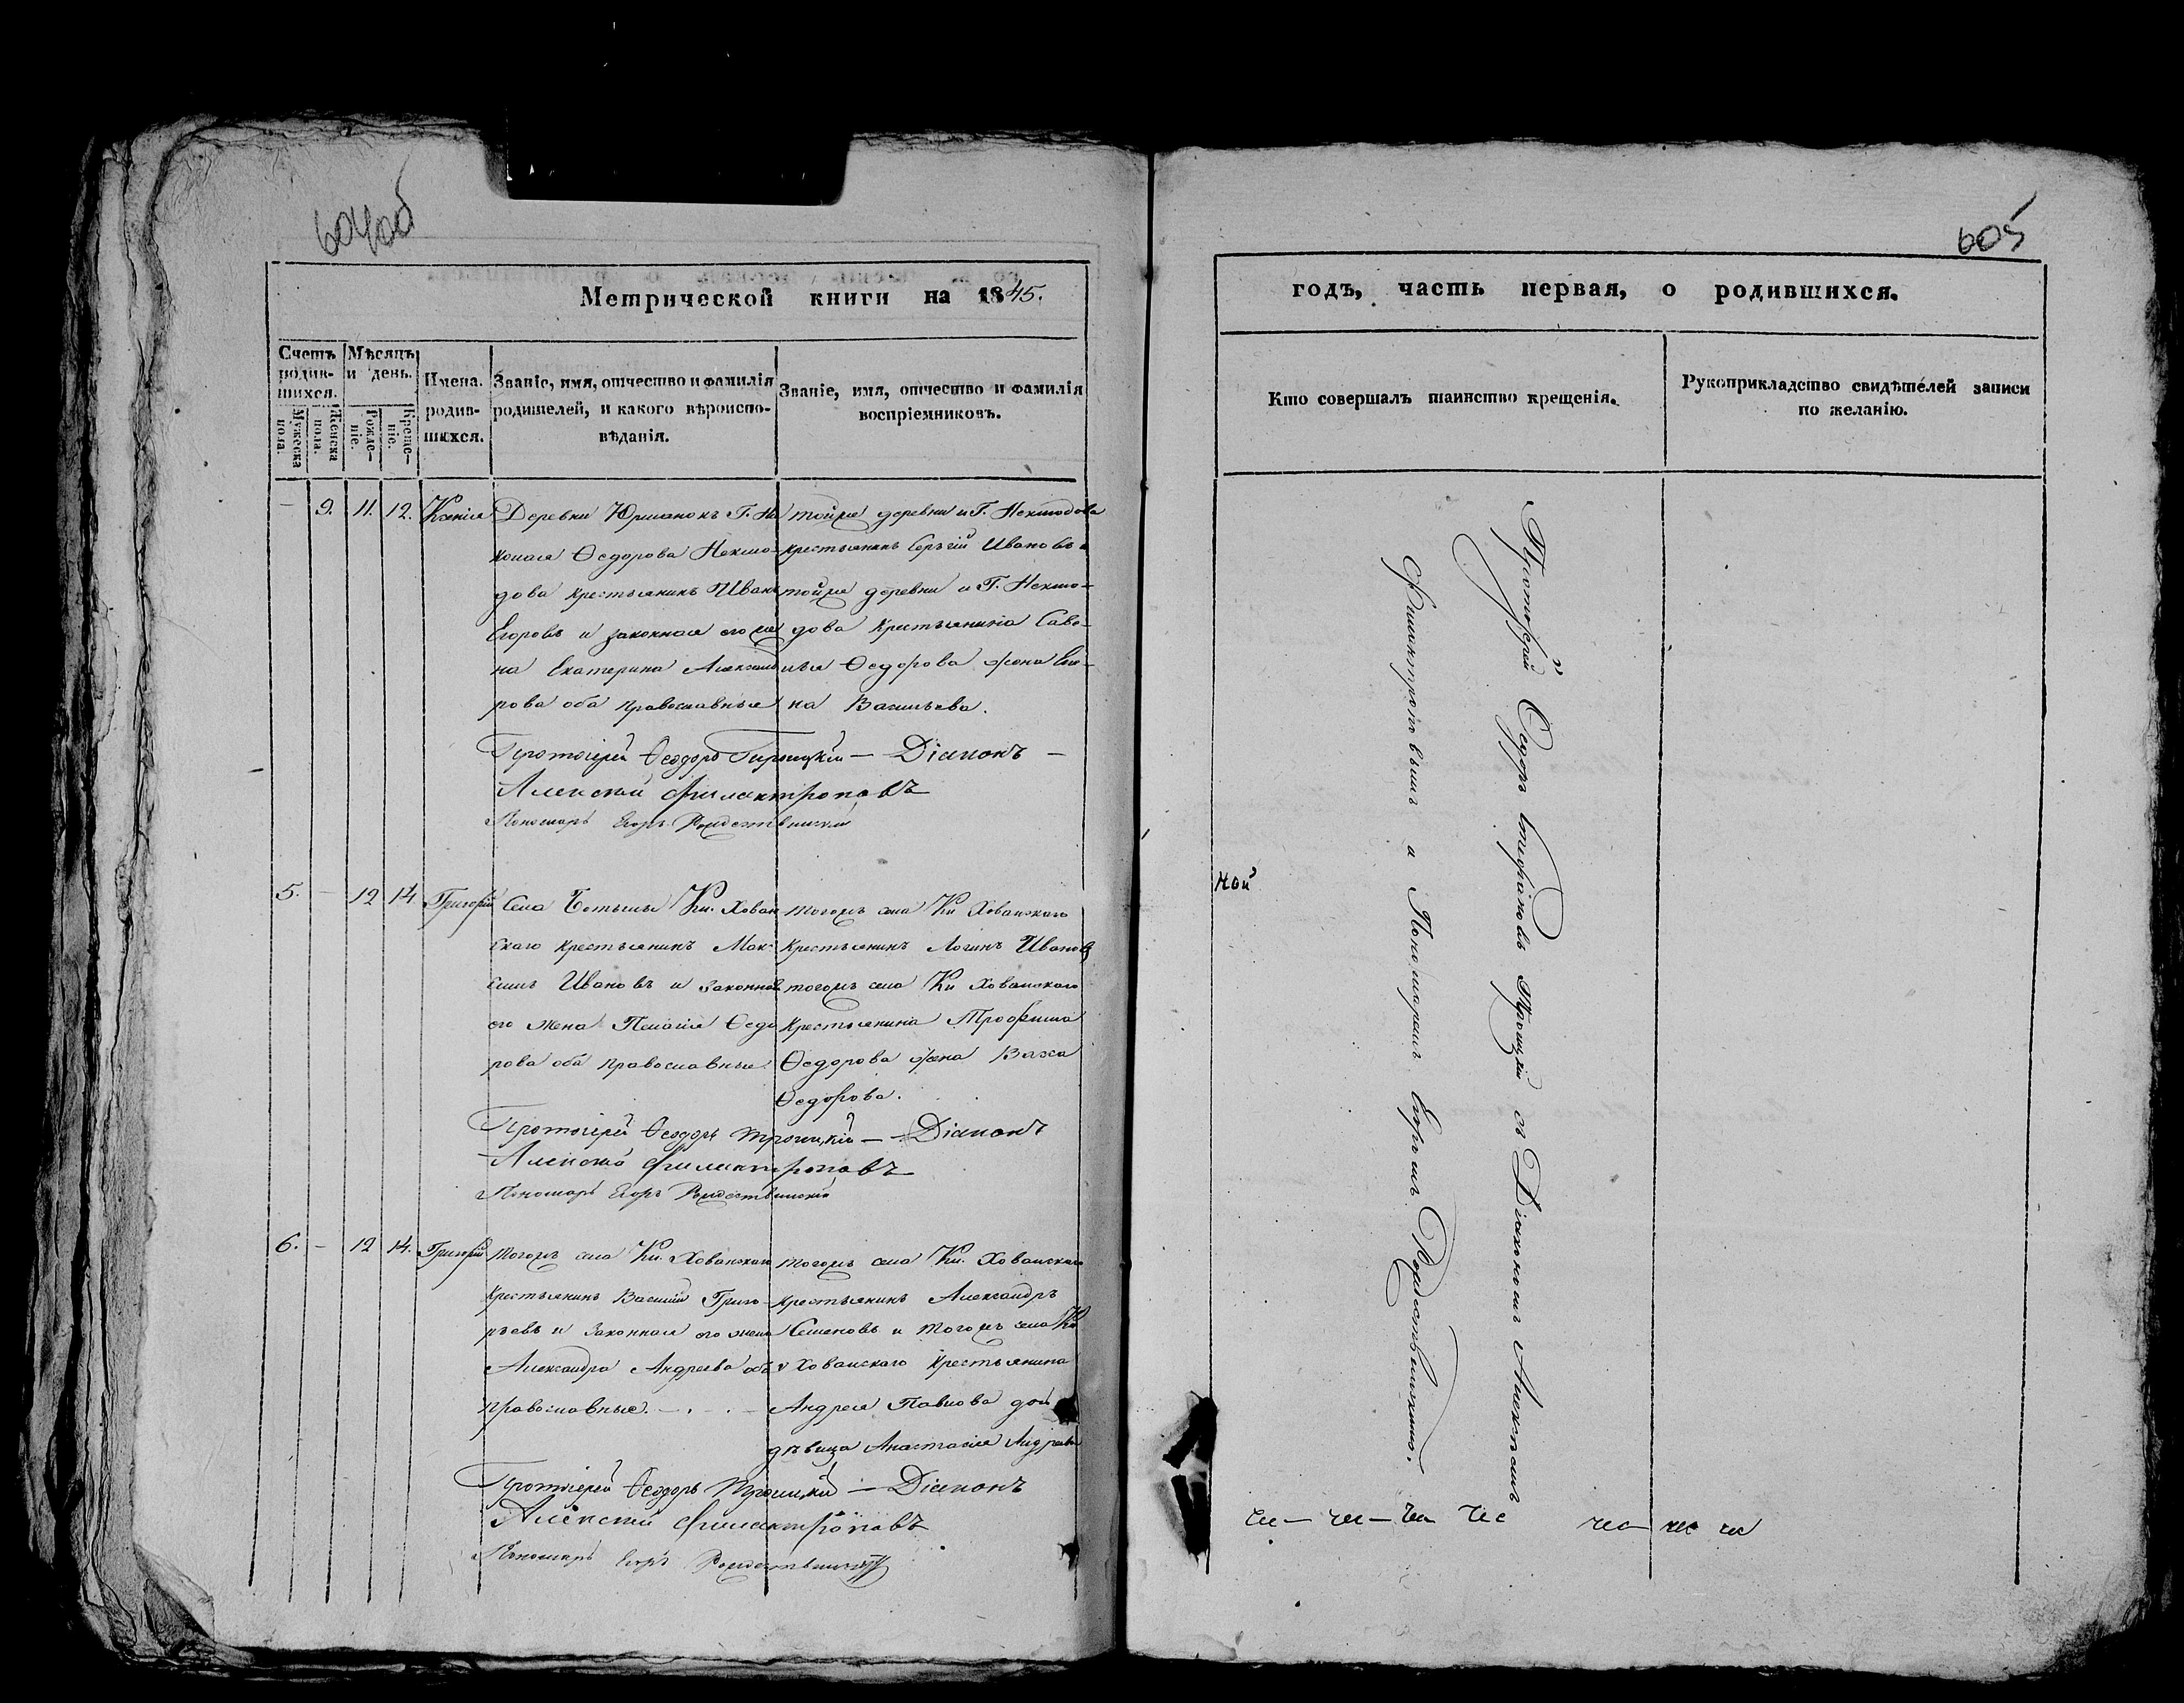 604об
Метрической книги на 1845.
Счетъ родив-шихся.
Мужеска пола.
Женска пола.
Мѣсяцъ и день.
Рожде-ніе.
Креще-ніе.
Имена. родив-шихся.
Званіе, имя, отчество и фамилія
родителей, и какого вѣроиспо-
вѣданія.
Званіе, имя, отчество и фамилія
воспріемниковъ.
— 9. 11. 12. Ксенія
Деревни Юрманокъ Г. Ни
колая Ѳедорова Некшо-
дова крестьянинъ Иванъ
Егоровъ и законная его же
на Екатерина Александ
рова оба православные
тойже деревни и Г. Некшодова
крестьянинъ Сергій Ивановъ и
тойже деревни и Г. Некшо-
дова крестьянина Саве-
лья Ѳедорова жена Еле-
на Васильева.
Протоіерей Ѳеодоръ Троицкій — Діаконъ —
Алексѣй Филантроповъ
Пономарь Егоръ Рождественскій
5. — 12 14 Григорій
Села Ботьмы Кн. Хован
скаго крестьянинъ Мак-
симъ Ивановъ и законная
его жена Пелагія Ѳедо
рова оба православные.
тогожъ села Кн Хованскаго
крестьянинъ Логинъ Ивановъ
тогожъ села Кн Хованскаго
крестьянина Трофима
Ѳедорова жена Васса
Ѳедорова.
Протоіерей Ѳеодоръ Троицкій — Діаконъ
Алексѣй Филантроповъ
Пономарь Егоръ Рождественскій
6. — 12 14. Григорій
тогожъ села Кн. Хованскаго
крестьянинъ Василій Григо-
рьевъ и законная его жена
Александра Андреева обѣ
православные.
тогожъ села Кн. Хованскаго
крестьянинъ Александръ
Семеновъ и тогожъ села Кн
Хованскаго крестьянина
Андрея Павлова дочь
дѣвица Анастасія Андреева
Протоіерей Ѳеодоръ Троицкій — Діаконъ
Алексѣй Филантроповъ
Пономарь Егоръ Рождественскій
605
годъ, часть первая, о родившихся.
Кто совершалъ таинство крещенія.
Рукоприкладство свидѣтелей записи
по желанію.
Протоіерей Ѳеодоръ Стефановъ Троицкій съ Діакономъ Алексѣемъ
Филантроповымъ и Пономаремъ Егоромъ Рождественскимъ.
ной